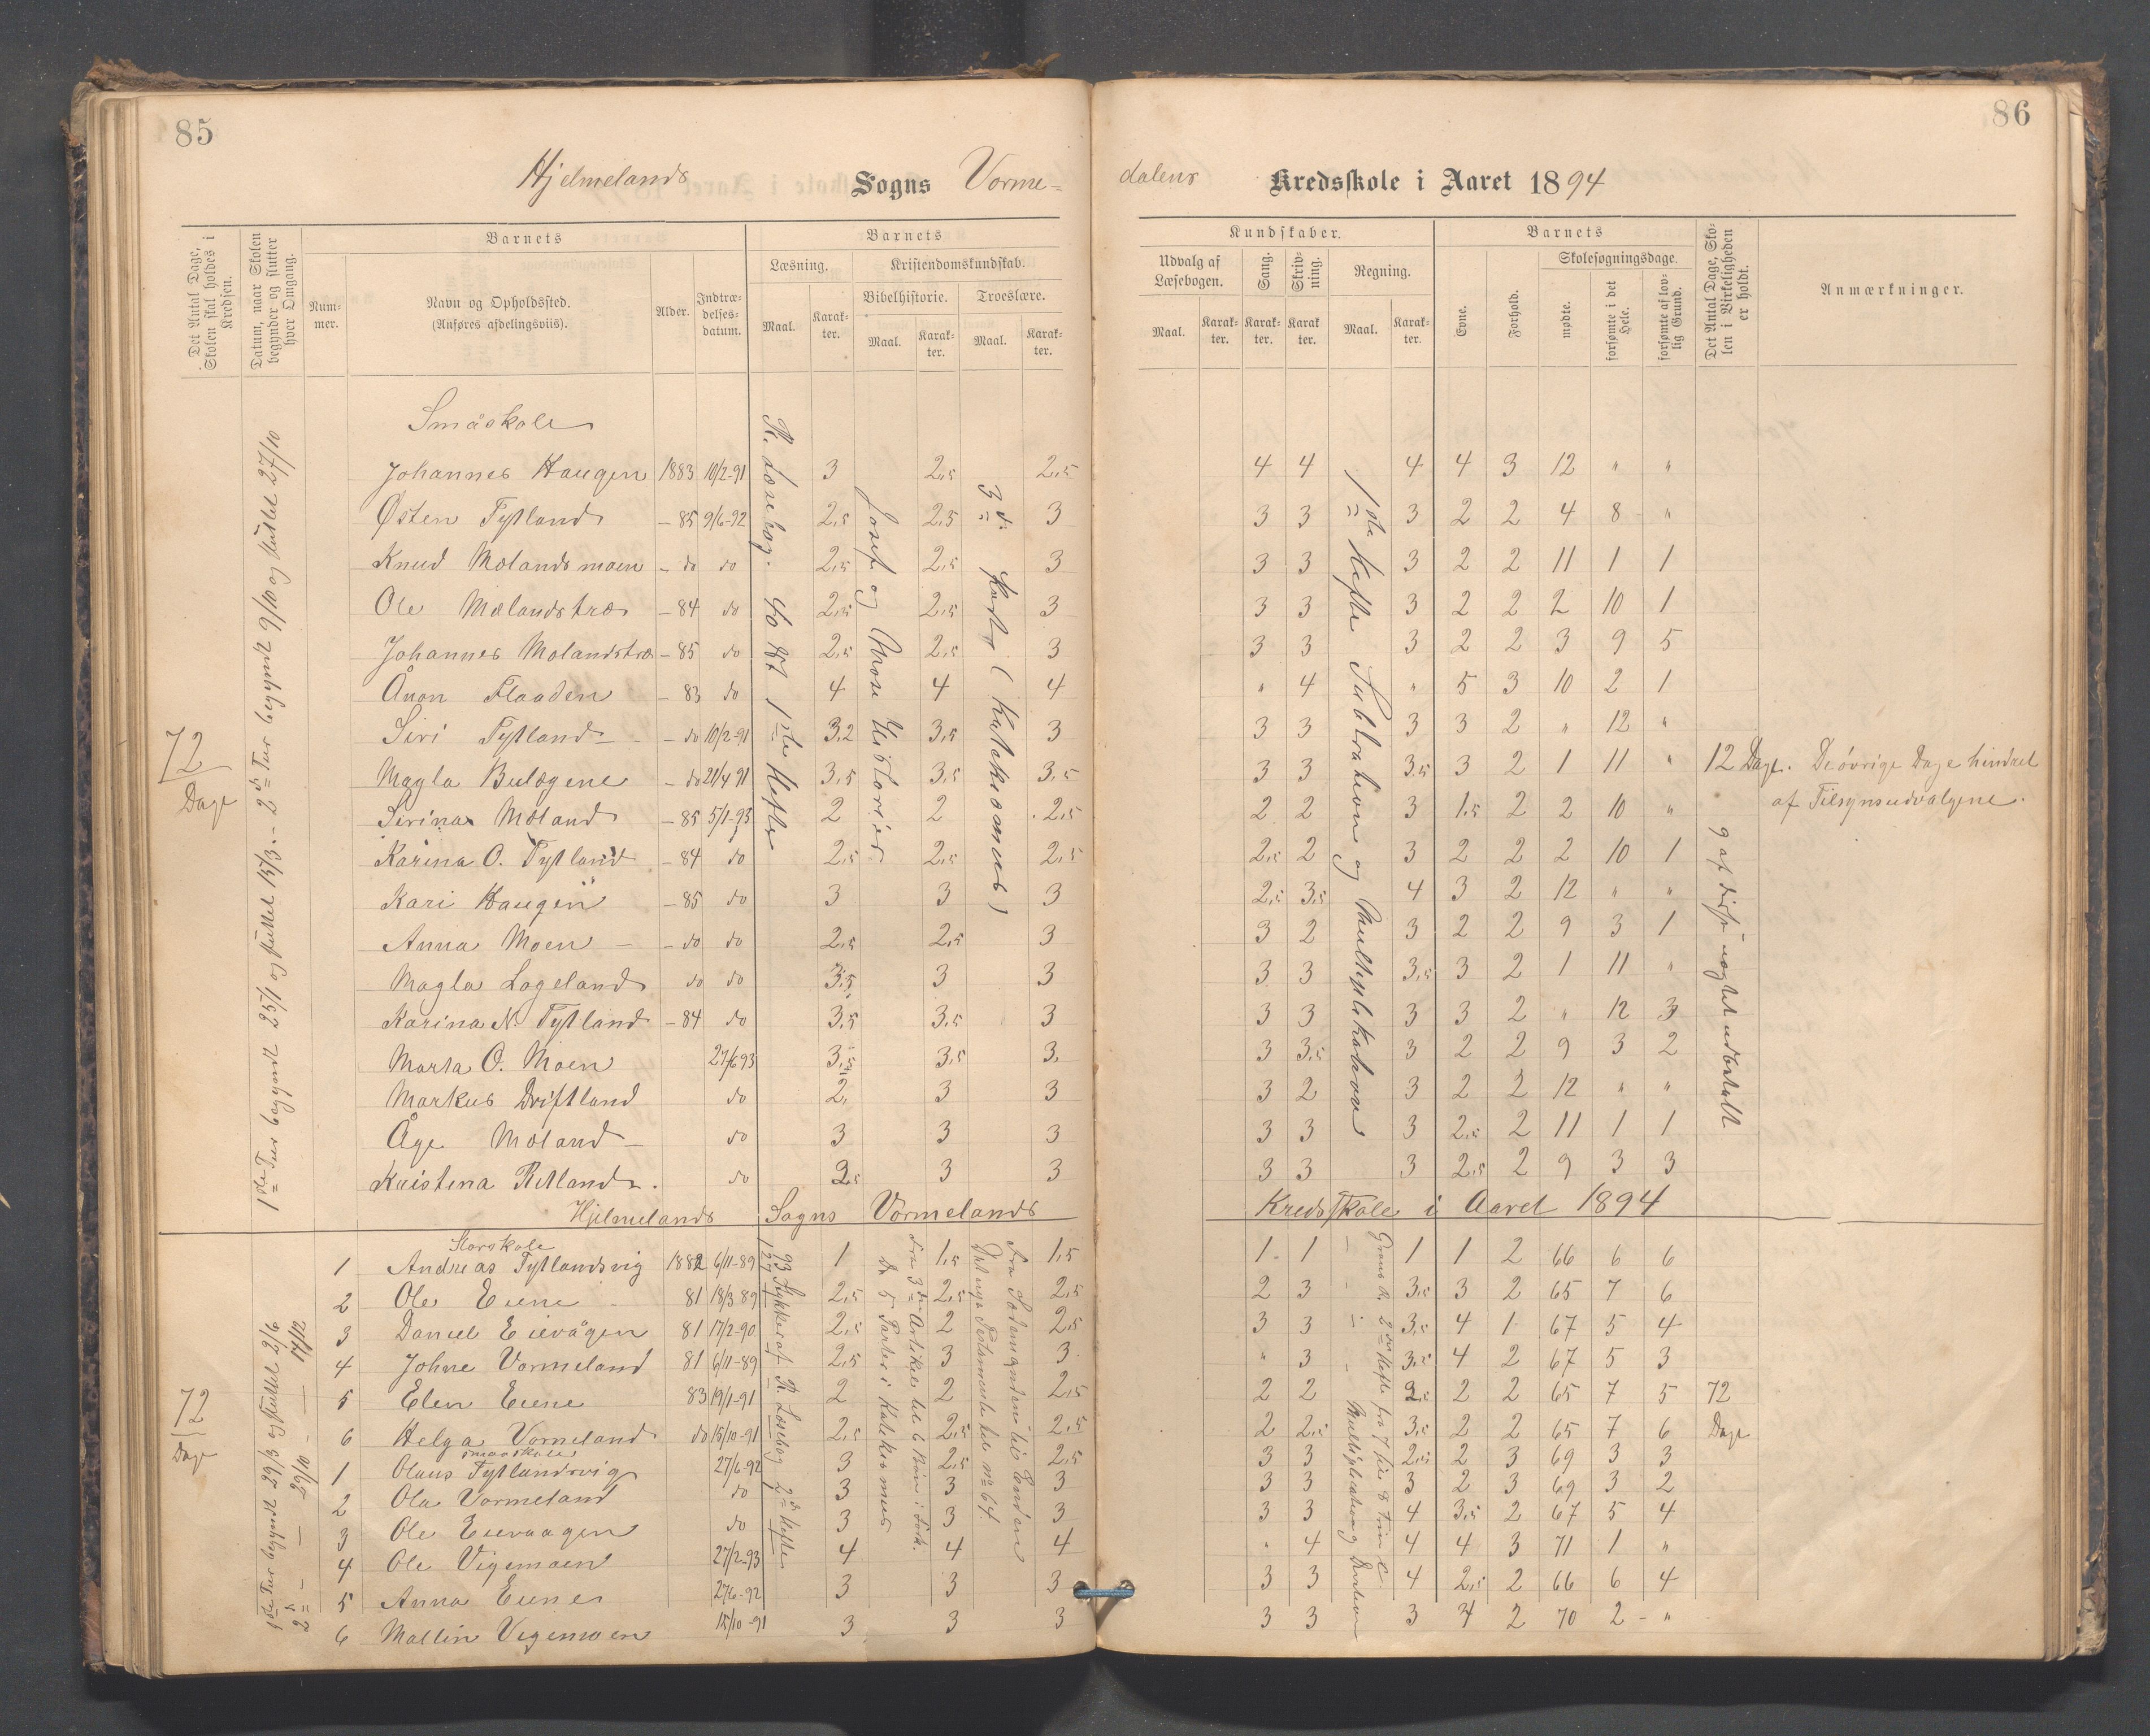 85
86
Hjelmelands Sogns Vorme=
dalens Kredsskole i Aaret 1894
Det Antal Dage, Skolen skal holdes i Kredsen.
Datum, naar Skolen begynder og slutter hver Omgang.
Barnets
Nummer.
Navn og Opholdssted.
(Anføres afdelingsviis).
Alder.
Indtrædelsesdatum.
Barnets
Læsning.
Maal.
Karakter.
Kristendomskundskab.
Bibelhistorie.
Maal.
Karakter.
Troeslære.
Maal.
Karakter.
Kundskaber.
Udvalg af Læsebogen.
Maal.
Karakter.
Sang.
Karakter.
Skrivning.
Karakter.
Regning.
Maal.
Karakter.
Barnets
Evne.
Forhold.
Skolesøgningsdage.
mødte.
forsømte i det Hele.
forsømte af lovlig Grund.
Det Antal Dage, Skolen i Virkeligheden er holdt.
Anmærkninger.
72 Dage
1ste Tur begyndt 25/1 og sluttet 15/3. - 2d Tur begyndt 9/10 og sluttet 27/10
Småskole
R. Læsebog. 40 St 1ste Hefte
Josef og Mose Historier
3die Part (Katekismus)
1ste Hefte Subtraktion og Multiplikation
Johannes Haugen 1883 10/2-91 3 2,5 2,5 4 4 4 4 3 12 " "
Østen Tytland - 85 9/6-92 2,5 2,5 3 3 3 3 2 2 4 8 "
Knud Mælandsmoen - do do 2,5 2,5 3 3 3 3 2 2 11 1 1
Ole Mælandstræ - 84 do 2,5 2,5 3 3 3 3 2 2 2 10 1
Johannes Mølandstræ - 85 do 2,5 2,5 3 3 3 3 2 2 3 9 5
Ånon Flaaden - 83 do 4 4 4 " 4 " 5 3 10 2 1
Siri Tytland - do 10/2-91 3,2 3,5 3 3 3 3 3 2 " 12 "
Magla Bulægene - do 21/4 91 3,5 3,5 3,5 3 3 3,5 3 2 1 11 "
12 Dage. De øvrige Dage hindret
af Tilsynsudvalgene.
Sirina Møland - 85 5/1-93 2 2 2,5 2 2 3 1,5 2 2 10 "
Karina O. Tytland - 84 do 2,5 2,5 2,5 2,5 2 3 2 2 2 10 1
Kari Haugen - 85 do 3 3 3 2,5 3,5 4 3 2 12 " "
Anna Moen - do do 2,5 2,5 3 3 2 3 2 2 9 3 1
Magla Lageland do do 3,5 3 3 3 3 3,5 3 2 1 11 "
Karina N. Tytland - 84 do 3,5 3,5 3 3 3 3 3 2 " 12 3
Marta O. Moen 27/6 93 3,5 3,5 3 3 3,5 3 2 2 9 3 2
Markus Driftland do 2 3 3 3 2 3 2 2 12 " "
Åge Møland do 3 3 3 3 3 3 2,5 2 11 1 1
Kristena Ritland do 2,5 3 3 3 3 3 2,5 2 9 3 3
9 af disse uagtet udbetalt
Hjelmelands Sogns Vormelands Kredsskole i Aaret 1894
72 Dage
1ste Tur begyndt 29/3 og sluttet 2/6
2d - - 26/10 - 17/12
Storskole
93 Stykker af R. Læsebog 2d Hefte
Fra 3die Artikel til 6 Bøn i
De 5 Parter i Katekismus
Det nye Testamente til no 64
1 Andreas Tytlandsvig 1882 6/11-89 1 1,5 1,5 1 1 1 1 2 66 6 6
2 Ole Eiene 81 18/3 89 2,5 2,5 2,5 2 3 3,5 3 2 65 7 6
3 Daniel Eievågen 81 17/2-90 2,5 2 2,5 3 3 3,5 4 1 67 5 4
4 Johne Vormeland 81 6/11-89 2,5 3 3 " 3 3,5 4 2 67 5 3
5 Elen Eiene 83 19/1-91 2 2 2,5 2 2 2,5 2 2 65 7 5 72
6 Helga Vormeland do 15/10-91 2,5 2,5 2,5 2 2,5 3,5 2 2 65 7 6 Dage
Smaaskole
1 Olaus Tytlandsvig 27/6-92 3 2,5 2,5 3 3 2,5 2 3 69 3 3
2 Ola Vormeland do 3 3 3 3 3 3 2 3 69 3 2
3 Ole Eievaagen do 3 3 3 3 3 4 3,5 2 67 5 4
4 Ole Vigemoen 27/2-93 4 4 4 " 4 4 4 3 71 1 "
5 Anna Eiene 27/6-92 3 3 3 3 3 4 2,5 2 66 6 4
6 Mallin Vigemoen 15/10-91 3 3 3 3 3 3 4 2 70 2 "